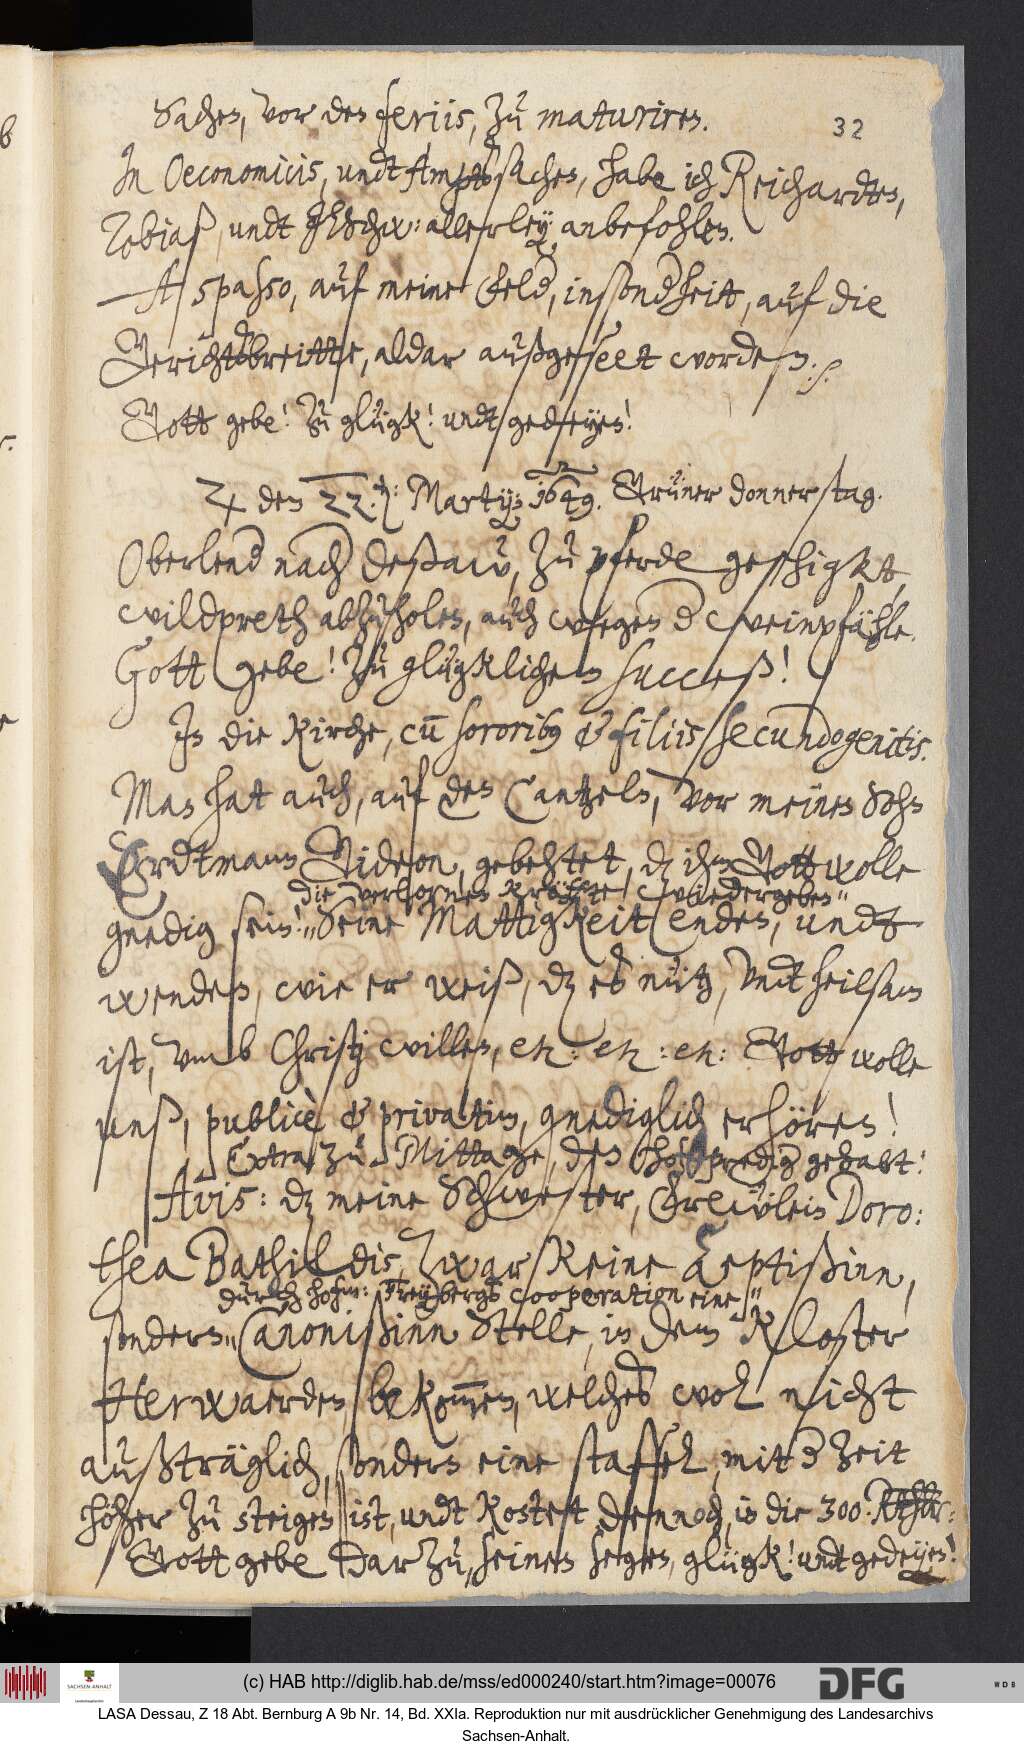 Sachen, vor den feriis, zu maturiren.
32
In Oeconomicis, undt Amptssachen, habe ich Reichardten,
Tobiaß, undt allerley anbefohlen.
A spasso, auf meine Feld, insonderheit, auf die
Gerichtsbreitte, aldar außgeseet worden.
Gott gebe! zu glügk! undt gedeyen!
♃ den 22. Martij: 1649. Grüner donnerstag.
Oberlend nach Deßaw, zu pferde geschigkt,
wildpreth abzuholen, auch wegen d weinpfähle.
Gott gebe! zu glügklichem succeß!
In die Kirche, cũ sororibus & filiis secundogenitis.
Man hat auch, auf den Cantzeln, vor meinen Sohn
Erdtmann Gideon, gebehtet, dz ihm Gott wolle
die verlornen Kräffte wiedergeben"
gnedig sein! "Seine Mattigkeit enden, undt
wenden, wie er weiß, dz es nütz, undt heilsam
ist, umb Christj willen, etc: etc: etc: Gott wolle
unß, publicè & privatim, gnediglich erhören!
Extra zu Mittage, den hofpredig gehabt:
Avis: dz meine Schwester, Frewlein Doro:
thea Bathildis, zwar keine Aeptißinn,
durch hofm: Freybergs cooperation eine"
sondern "Canonißinn Stelle, in dem Kloster
Herwaerden bekom̅en, welches wol nicht
außträglich, sondern eine staffel, mit d zeit
höher zu steigen ist, undt kostet dennoch, in die 300 Rthlr:
Gott gebe darzu, seinen segen, glügk! undt gedeyen!
(c) HAB http://diglib.hab.de/mss/ed000240/start.htm?image=00076
SACHSEN-ANHALT
DFG
WDB
LASA Dessau, Z 18 Abt. Bernburg A 9b Nr. 14, Bd. XXIa. Reproduktion nur mit ausdrücklicher Genehmigung des Landesarchivs
Sachsen-Anhalt.